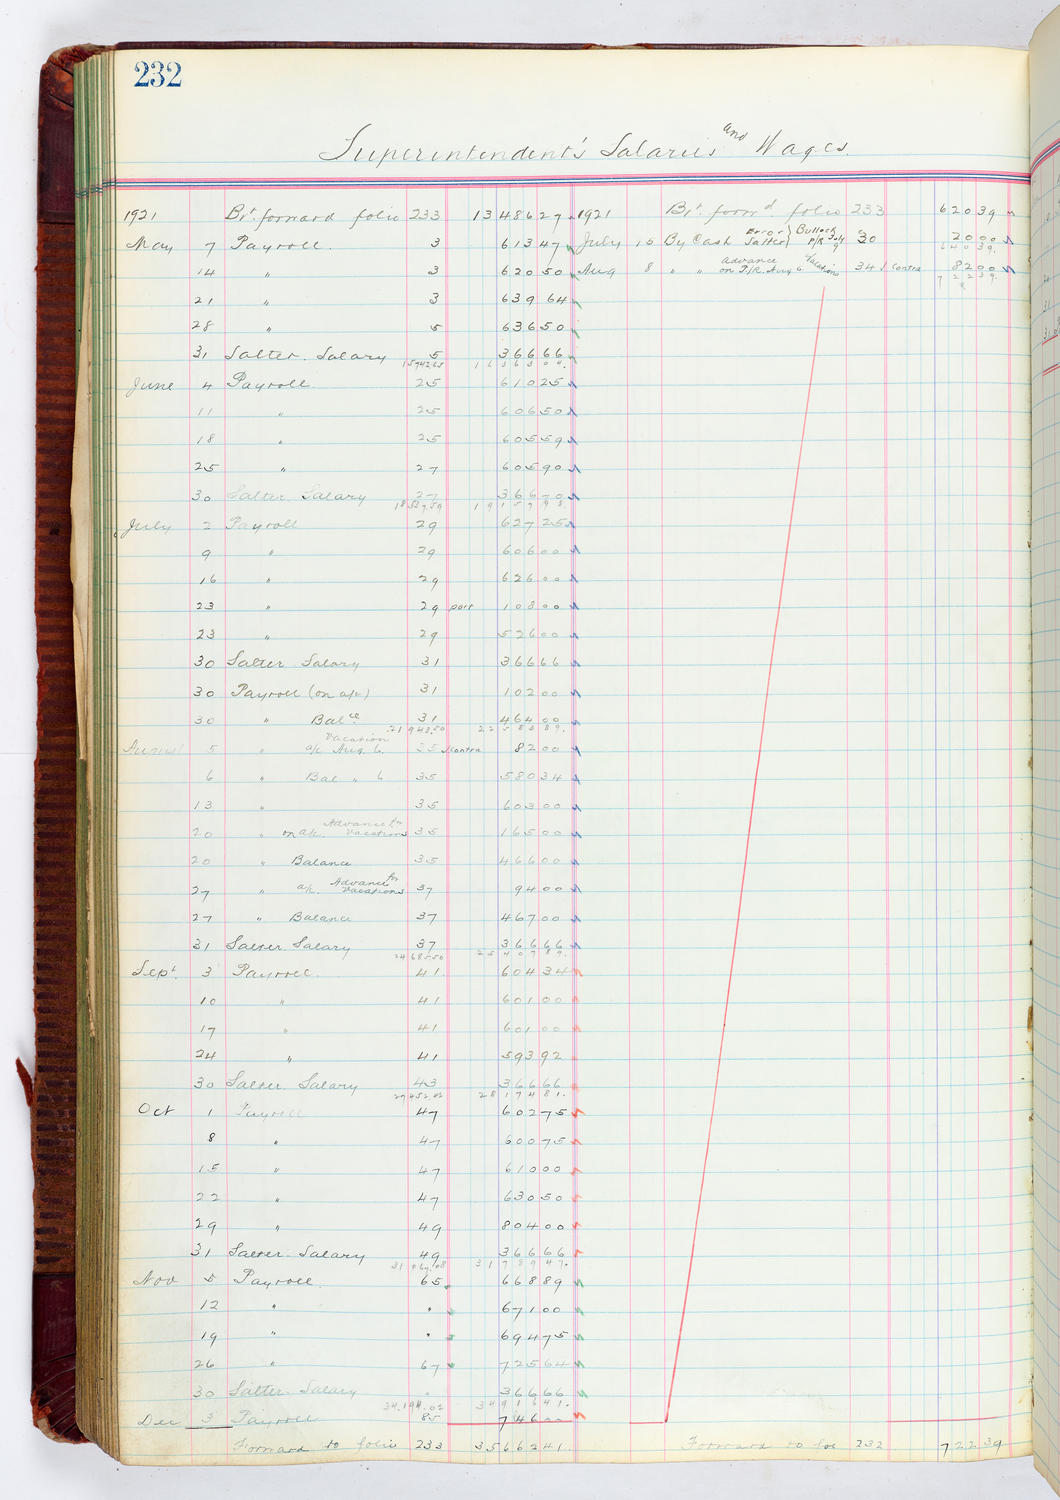 232
Superintendent's Salaries and Wages.
1921 Brt. forward folio 233 1348627 1921 Brt. forwd. folio 233 62039
May 7 Payroll. 3 61347 July 15 By Cash Error Salter Bullock P/R July 9 30 2000
64039.
14 " 3 62050 Aug 8 " " advance on P/R. Aug 6 Vacations 34 contra 8200
72239.
21 " 3 63964
28 " 5 63650
31 Salter. Salary 5 36666
15742.65 1636304.
June 4 Payroll 25 61025
11 " 25 60650
18 " 25 60559
25 " 27 60590
30 Salter. Salary 27 36670
18537.59 1915798.
July 2 Payroll 29 62725
9 " 29 60600
16 " 29 62600
23 " 29 part 10800
23 " 29 52600
30 Salter Salary 31 36666
30 Payroll (on a/c) 31 10200
30 " Balce. 31 46400
21943.50 2258389.
August 5 " Vacation a/c Aug. 6. 35 contra 8200
6 " Bal " 6 35 58034
13 " 35 60300
20 " on a/c. Advance for Vacations 35 16500
20 " Balance 35 46600
27 " a/c. Advance for Vacations 37 9400
27 " Balance 37 46700
31 Salter. Salary 37 36666
24685.50 2540789.
Sept. 3 Payroll. 41. 60434
10 " 41 60100
17 " 41 60100
24 " 41 59392
30 Salter. Salary 43 36666
27452.42 2817481.
Oct 1 Payroll 47 60275
8 " 47 60075
15 " 47 61000
22 " 47 63050
29 " 49 80400
31 Salter. Salary 49 36666
31067.08 3178947.
Nov 5 Payroll. 65 66889
12 " " 67100
19 " " 69475
26 " 67 72564
30 Salter. Salary " 36666
34,194.02 3491641.
Dec 3 Payroll 85 74600
Forward to folio 233 3566241. Forward to fol 232 72239